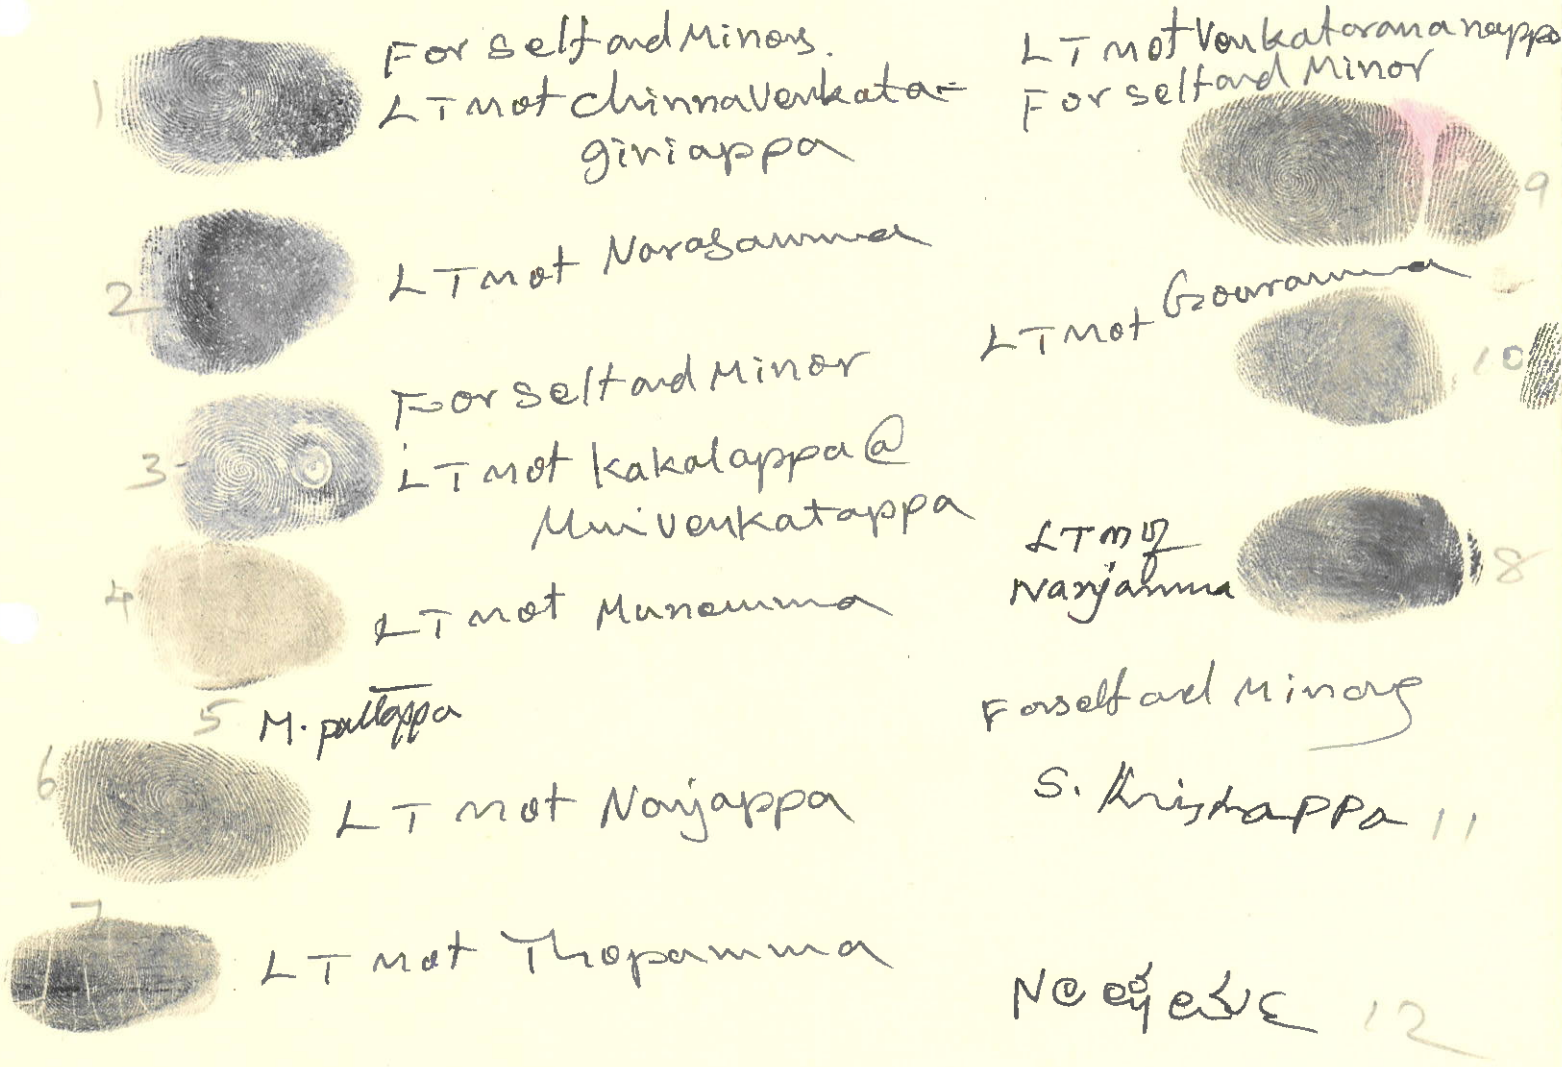 For self and Minors.
1 LTM of chinnavenkata-
giriappa
2 LTM of Narasamma
For self and Minor
3 LTM of Kakalappa @
Munivenkatappa
4 LTM of Munemma
5 M. pattappa
6 LTM of Nanjappa
7 LTM of Thopamma
LTM of Venkataramanappa
For self and Minor
9
LTM of Gowramma
10
LTM of
Nanjamma 8
For self and Minors
S. Krishappa 11
12